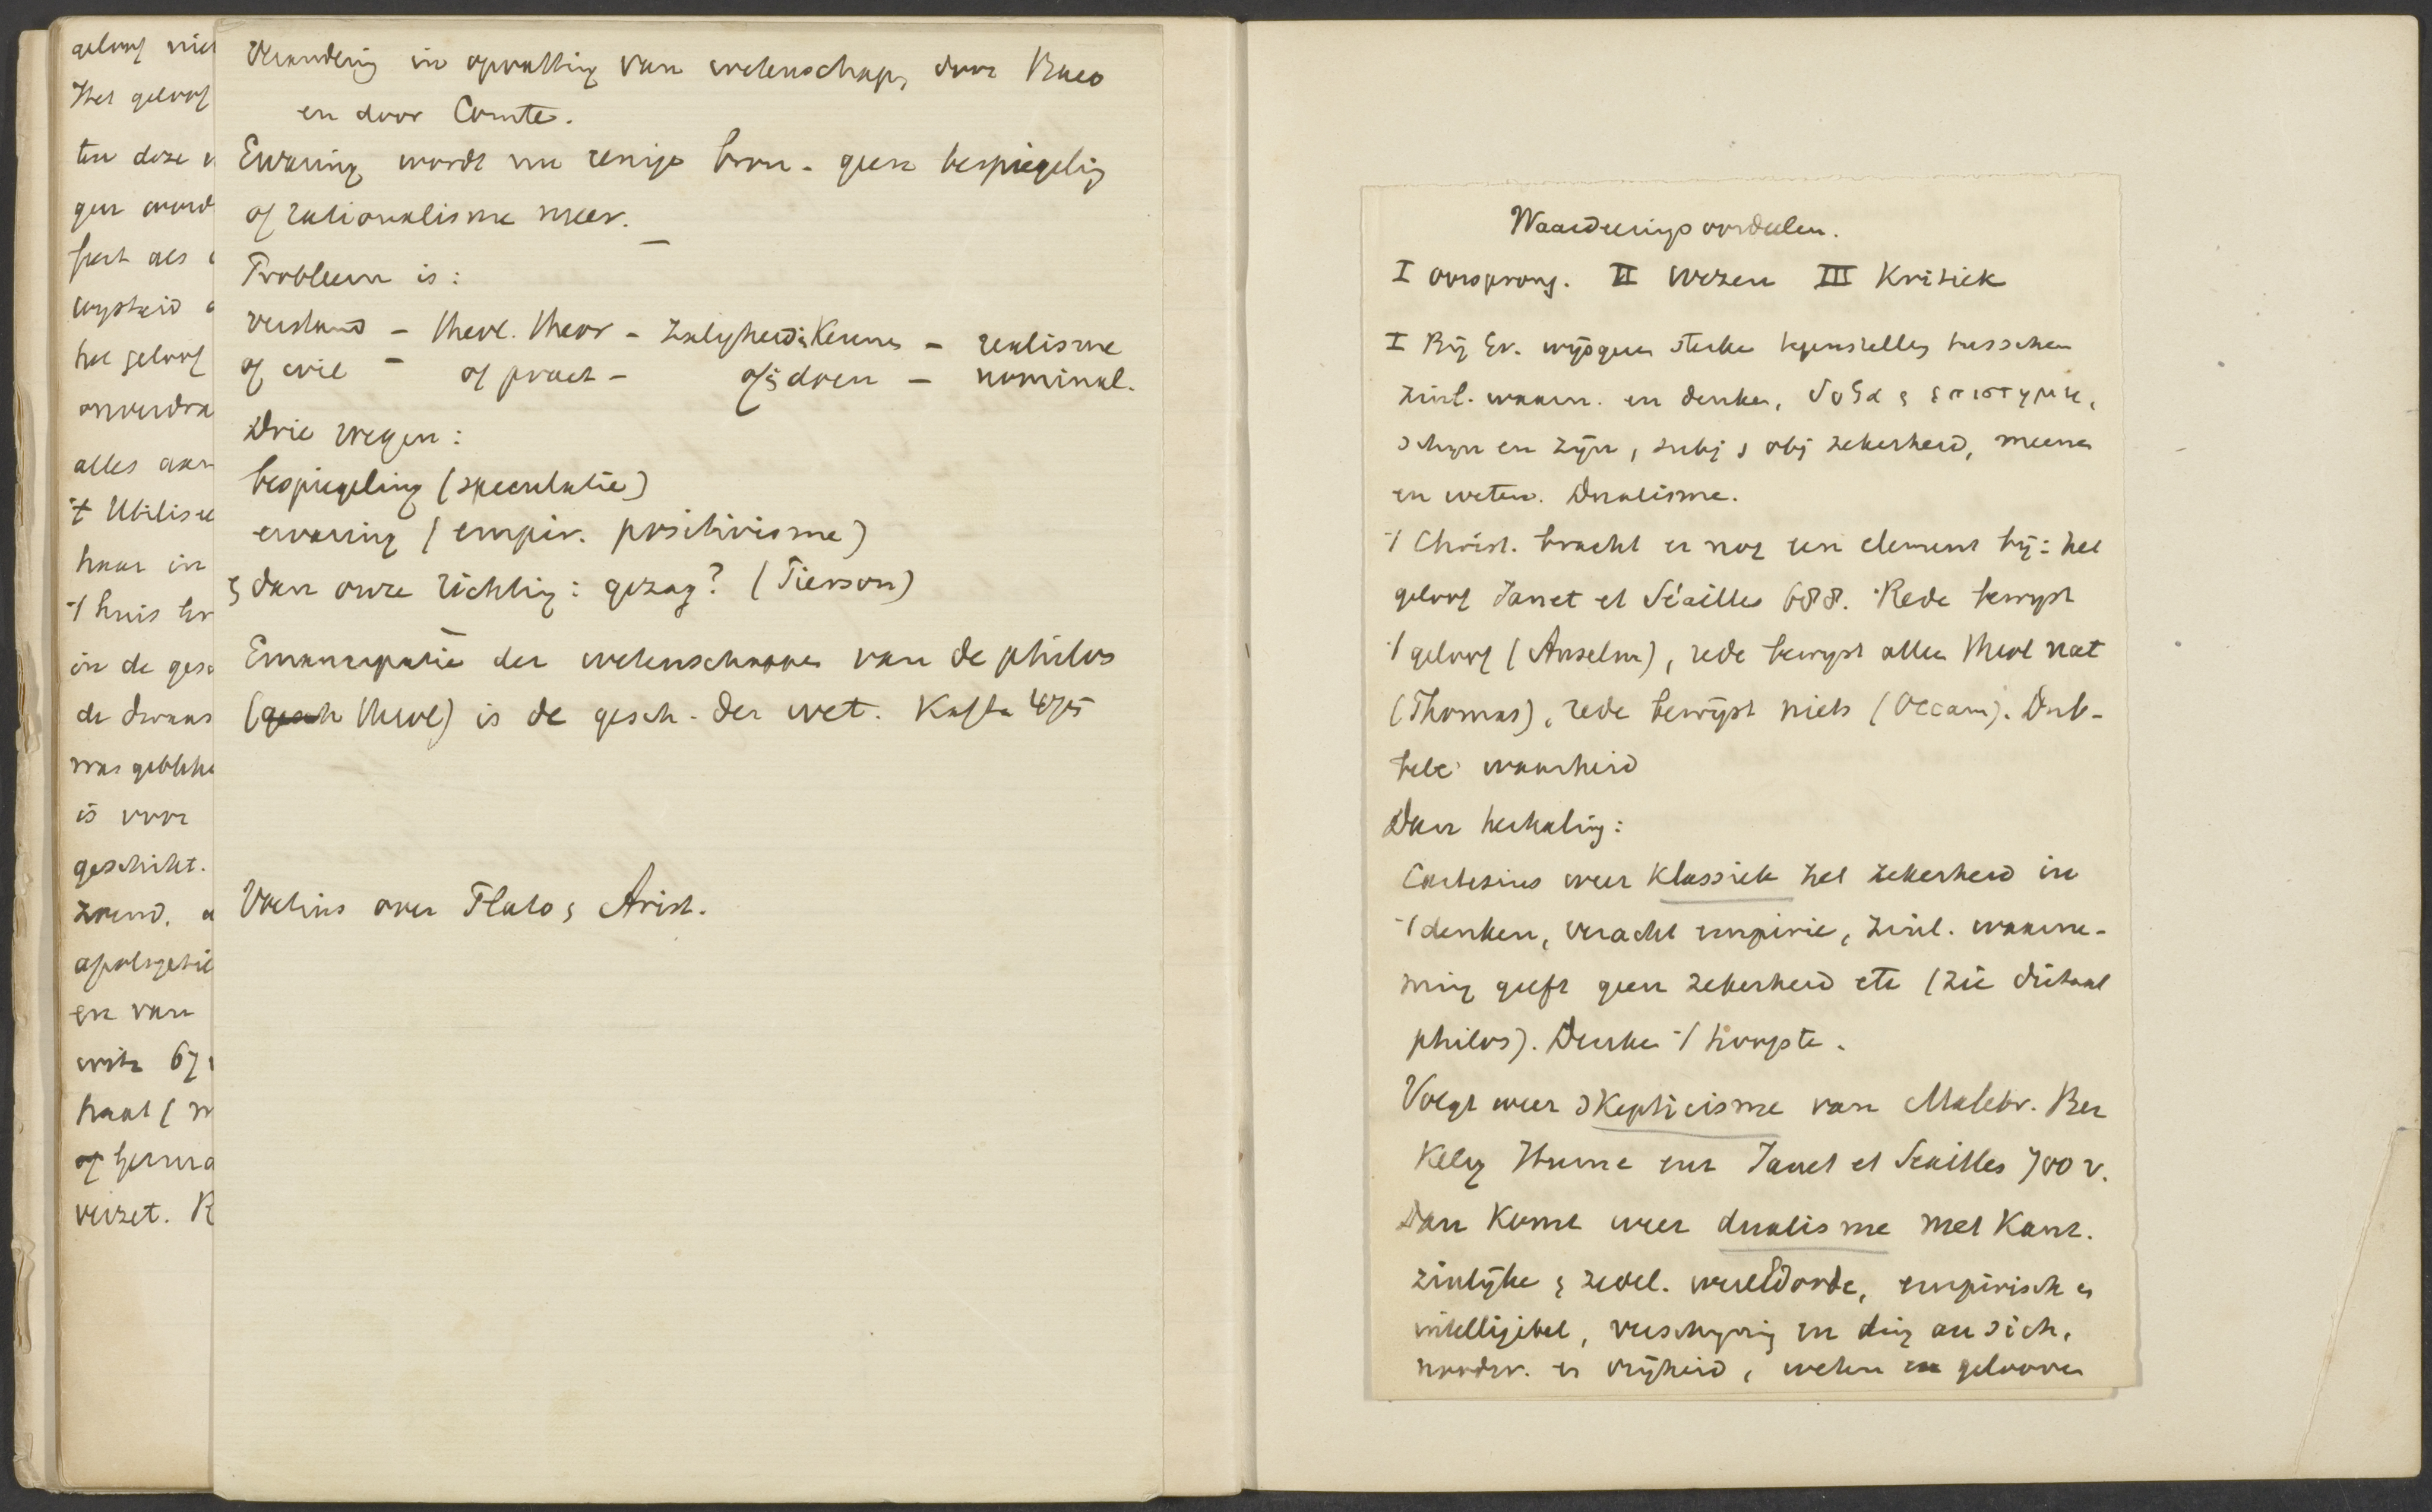 geloof nie
Het geloof
ten deze v
gen word
feest als
wysheid
het geloof
onverdra
alles aan
't Utilise
haar in
't huis
in de gesc
de dwaas
was gebleke
is voor
geschiht.
zoend.
apologetie
en van
write 67
haal (
of
verzet. R
Verandering in opvatting van wetenschap, door Baco
en door Comte.
Ervaring wordt nu eenige bron. geen bespiegeling
of rationalisme meer.
Probleem is:
verstand – theol. theor – zaligheid is Kennen – realisme
of wil – of pract – of is doen – nominal.
Drie wegen:
bespiegeling (speculatie)
ervaring (empir. positivisme)
& dan onze richting: gezag? (Pierson)
Emancipatie der wetenschappen van de philos
(gesch theol) is de gesch. der wet. Kaftan 475
Voetius over Plato & Arist.
Waardeeringsoordeelen.
I oorsprong. II Wezen III Kritiek
I Bij Gr. wijsgeeren sterke tegenstelling tusschen
zinl. waarn. en denken, δοξα & επιστημη,
schijn en zijn, subj & obj zekerheid, meenen
en weten. Dualisme.
't Christ. bracht er nog een element bij: het
geloof Janet et Séailles 688. Rede bewijst
't geloof (Anselm), rede bewijst alleen theol nat
(Thomas), rede bewijst niets (Occam). Dub-
bele waarheid
Dan herhaling:
Cartesius weer klassiek zet zekerheid in
't denken, veracht empirie, zinl. waarne-
ming geeft geen zekerheid etc (zie dictaat
philos). Denken 't hoogste.
Volgt weer skepticisme van Malebr. Ber
Keley Hume enz Janet et Seailles 700 v.
Dan komt weer dualisme met Kant.
zinlijke & zedel. wereldorde, empirisch en
intelligibel, verschijning en ding an sich,
noodw. en vrijheid, weten en gelooven